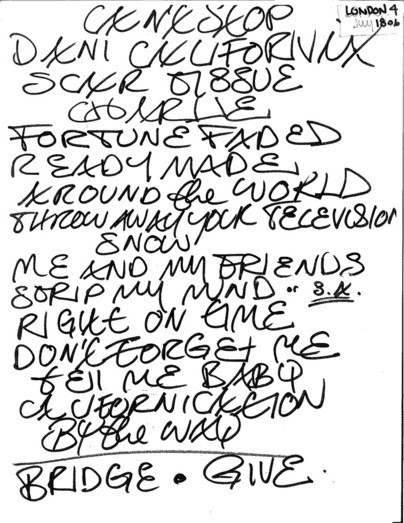 CAN'T STOP
LONDON 4
July 1806
DANI CALIFORNIA
SCAR TISSUE
CHARLIE
FORTUNE FADED
READYMADE
AROUND the WORLD
THROW AWAY YOUR TELEVISION
SNOW
ME AND MY FRIENDS
STRIP MY MIND or S.A.
RIGHT ON TIME
DON'T FORGET ME
tEll ME BABY
CALIFORNICATION
BY the WAY
BRIDGE • GIVE.